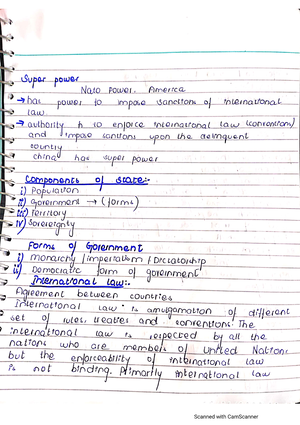 Super power
Nato Power, America
→ has power to impose sanctions of international
law.
→ authority h to enforce international law (conventions)
and impose santions upon the delinquent
country
china has super power
Components of state:-
i) Population
ii) Government → (forms)
iii) Territory
iv) Sovereignty
Forms of Government
i) monarchy / imperialism / Dictatorship
ii) Democratic form of government
International law:-
Agreement between countries
International law is amalgamation of different
set of rules, treaties and conventions. The
international law is respected by all the
nations who are members of United Nations
but the enforceability of international law
is not binding. Primarily international law
Scanned with CamScanner